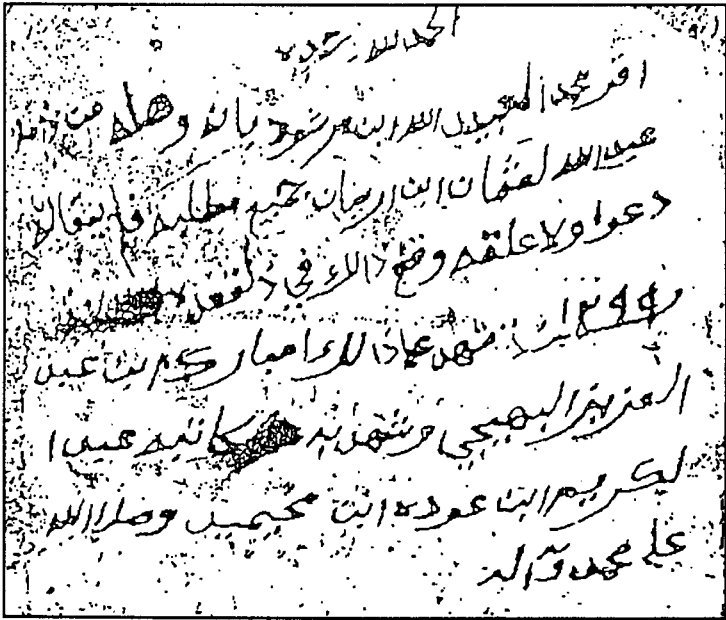 الحمد لله وحده
اقر محمد العبدالله ابن مرشود بانه وصله من
عبدالله لعثمان ابن جميع مطلبه فا بقاله
دعوا ولا علقه وقع ذالك في ذلقعده
١٢٩٩ شهد عاذالك امبارك ابن عبد
العزيز البهيجي وشهد به كاتبه عبدا
لكريم ابن عوده ابن محيميد وصلى الله
على محمد وآله